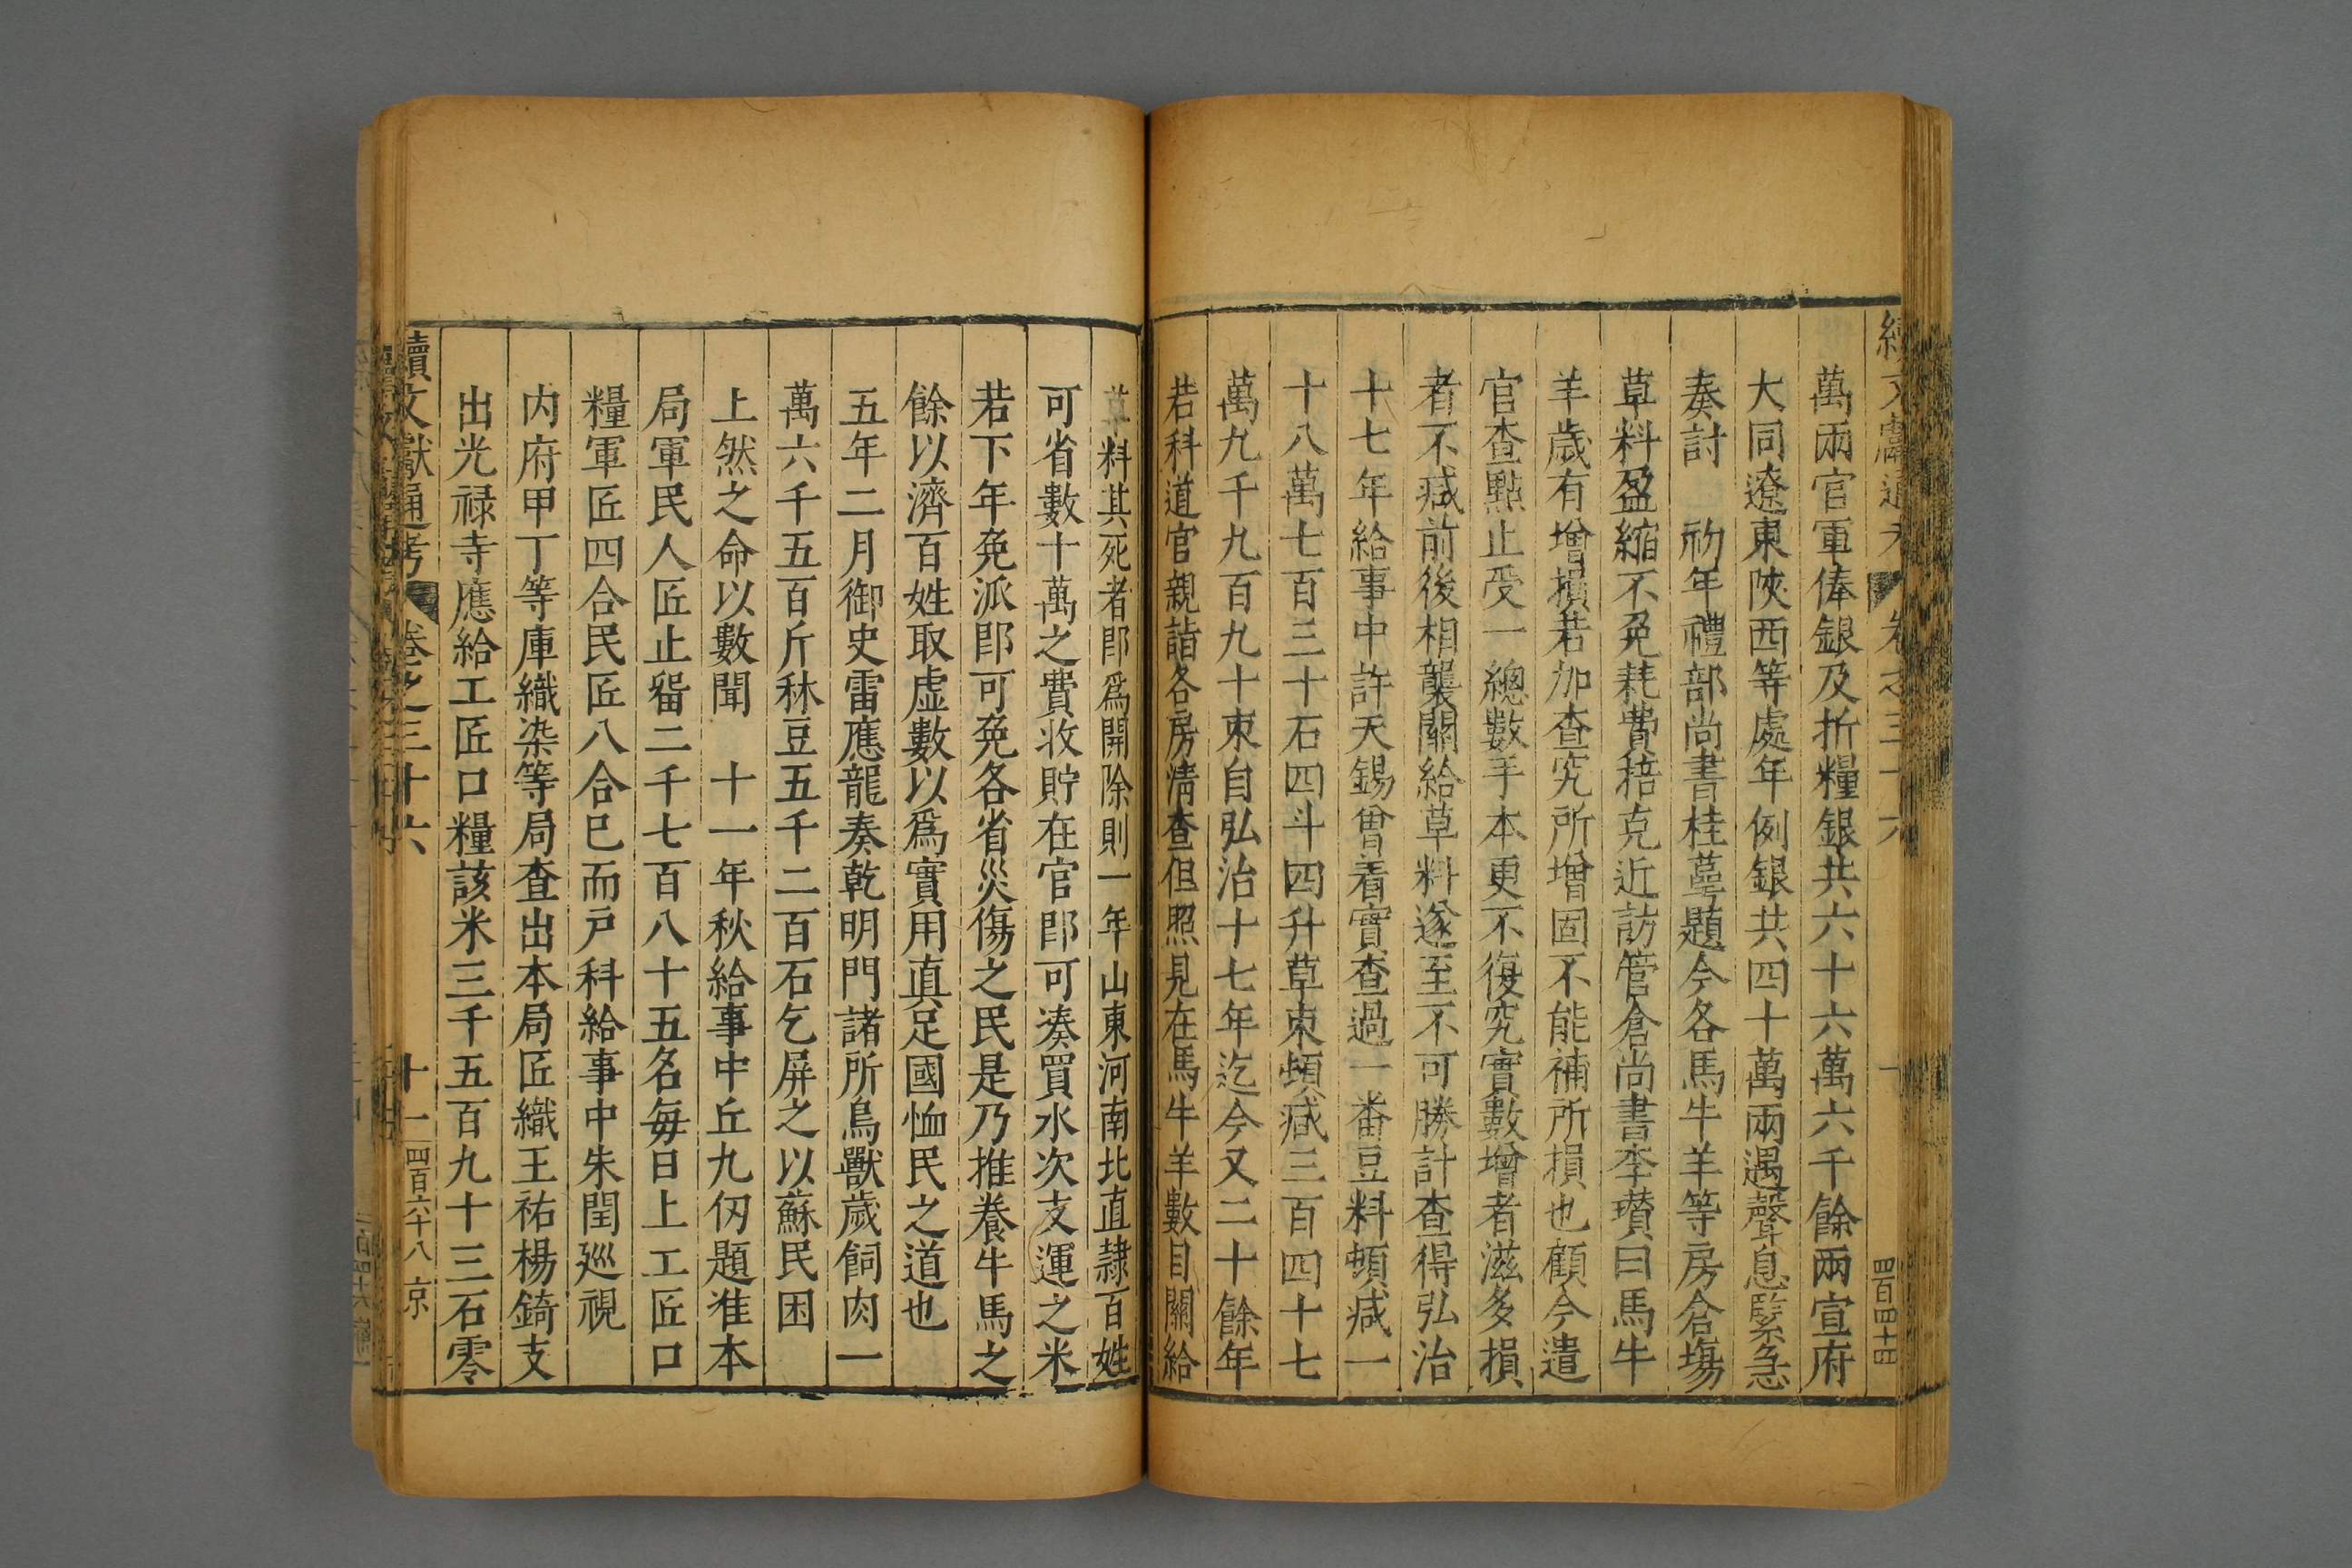 萬兩官軍俸銀及折糧銀共六十六萬六千餘兩宣府
大同遼東陝西等處年例銀共四十萬兩遇聲息緊急
奏討 初年禮部尚書桂萼題今各馬牛羊等房倉塲
草料盈縮不免耗費掊克近訪管倉尚書李瓚曰馬牛
羊歲有增損若加查究所增固不能補所損也顧今遣
官查點止受一總數手本更不復究實數增者滋多損
者不減前後相襲關給草料遂至不可勝計查得弘治
十七年給事中許天錫曾着實查過一番豆料頓減一
十八萬七百三十石四斗四升草束頓減三百四十七
萬九千九百九十束自弘治十七年迄今又二十餘年
若科道官親詣各房清查但照見在馬牛羊數目關給
草料其死者卽爲開除則一年山東河南北直隷百姓
可省數十萬之費收貯在官卽可湊買水次支運之米
若下年免派卽可免各省災傷之民是乃推養牛馬之
餘以濟百姓取虚數以爲實用真足國恤民之道也
五年二月御史雷應龍奏乾明門諸所鳥獸歲飼肉一
萬六千五百斤秫豆五千二百石乞屏之以蘇民困
上然之命以數聞 十一年秋給事中丘九仞題准本
局軍民人匠止留二千七百八十五名每日上工匠口
糧軍匠四合民匠八合已而戶科給事中朱閏巡視
内府甲丁等庫織染等局查出本局匠織王祐楊錡支
出光禄寺應給工匠口糧該米三千五百九十三石零
續文獻通考 卷之三十六 十一 四百六十八 京